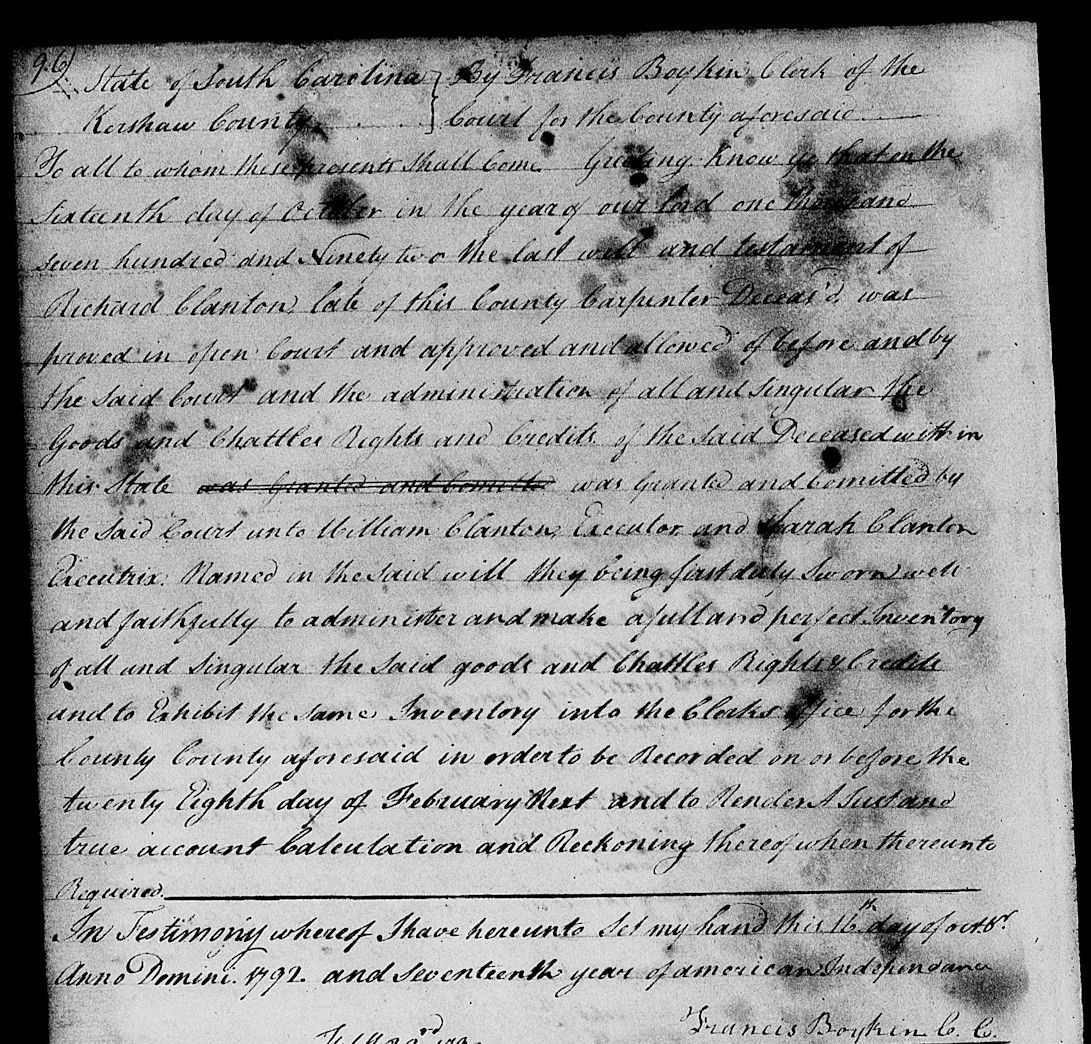 96
State of South Carolina } By Francis Boykin Clerk of the
Kershaw County, } Court for the County aforesaid
To all to whom these presents shall Come Greeting Know ye that on the
Sixteenth day of October in the year of our lord one thousand
seven hundred and Ninety two the last will and testament of
Richard Clanton, late of this County Carpenter Deceas'd, was
proved in open Court and approved and allowed of before and by
the said Court and the administration of all and Singular the
Goods and Chattles Rights and Credits of the said Deceased with in
this State was Granted and Comitte was Granted and Comitted by
the said Court unto William Clanton, Executor and Sarah Clanton
Executrix, Named in the said will they being first duly Sworn well
and faithfully to administer and make a full and perfect Inventory
of all and singular the said goods and Chattles Rights & Credits
and to Exhibit the same Inventory into the Clerks office for the
County County aforesaid in order to be Recorded on or before the
twenty Eighth day of February Next and to Render A Just and
true account Calculation and Reckoning thereof when thereunto
Required.
In Testimony whereof I have hereunto Set my hand this 16th day of octbr.
Anno Domini. 1792. and Seventeenth year of american Independance
Francis Boykin C. C.